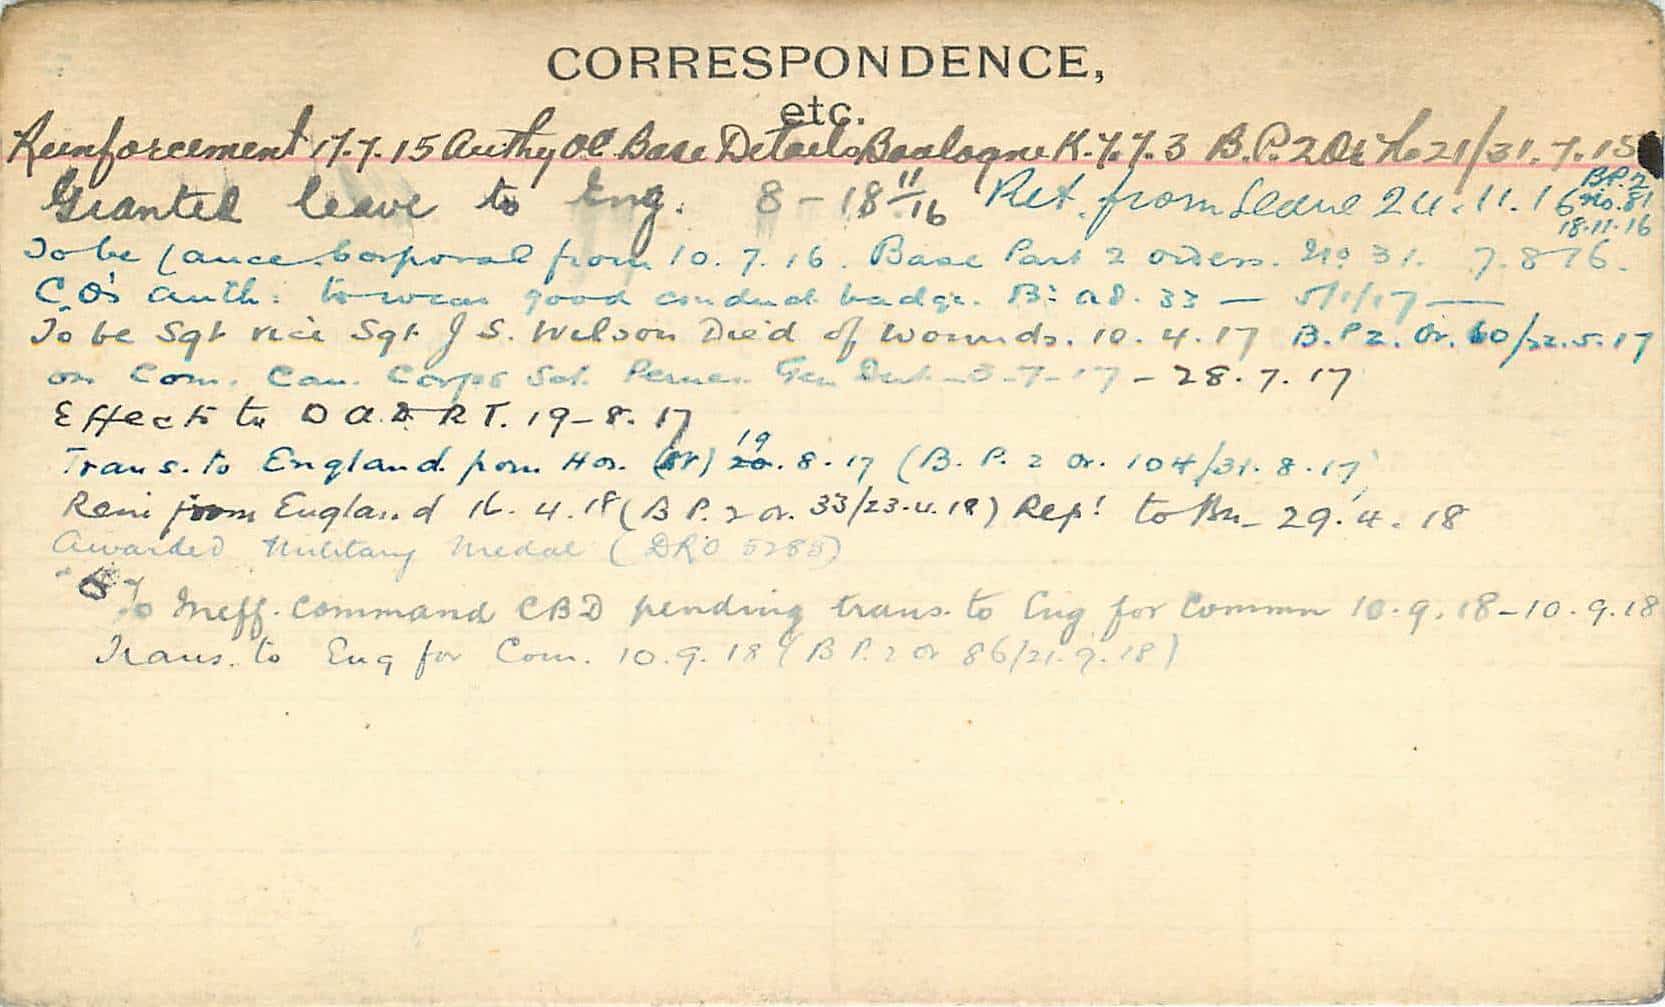 CORRESPONDENCE,
etc.
Reinforcement 17.7.15 Authy OC. Base Details Boulogne K.7.7.3 B.P.2 Or No 21/31.7.15
Granted leave to Eng. 8-18 11/16 Ret. from Leave 24.11.16 B.P.2 No. 81 18.11.16
To be Lance Corporal from 10.7.16. Base Part 2 orders. No 31. 7.8.16.
C.O's auth: to wear good conduct badge. 33 — 5/1/17 —
To be Sgt vice Sgt J S. Wilson Died of Wounds. 10.4.17 B.P2. Or. 60/22.5.17
on Com. Can. Corps 3-7-17 - 28.7.17
Effects to D A.D R T. 19-8.17
Trans. to England from Hos. 19.8.17 (B.P.2 Or. 104/31.8.17)
Rein from England 16.4.18 (B P.2 or. 33/23.4.18) Rep! to Bn_ 29.4.18
Awarded Military Medal (DRO 5285)
To Ineff. Command CBD pending trans. to Eng for Commn 10.9.18-10.9.18
Trans. to Eng for Com. 10.9.18 (B P.2 or 86/21.9.18)